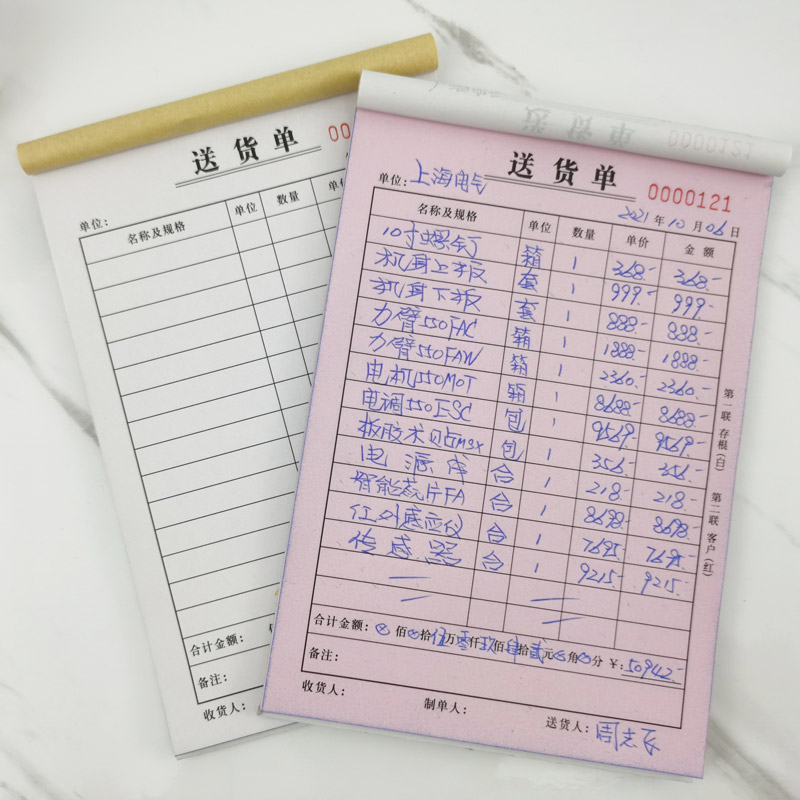 送货单
00
单位：
名称及规格 单位 数量 单
合计金额：
备注：
收货人：
送货单
0000121
送货单
0000121
单位：上海电气
2021年10月06日
名称及规格 单位 数量 单价 金额
10寸螺钉 箱 1 368.- 368.-
机身上板 套 1 999.- 999.-
机身下板 套 1 888.- 888.-
力臂550FAC 箱 1 1888.- 1888.-
力臂550FAW 箱 1 2360.- 2360.-
电机550MOT 箱 1 8688.- 8688.-
电调550ESC 包 1 9569.- 9569.-
板胶术贴M3X 包 1 356.- 356.-
电源 台 1 218.- 218.-
智能 片FA 台 1 8698.- 8698.-
红外感应仪 台 1 7695.- 7695.-
传感器 台 1 9215.- 9215.-
合计金额：⊗佰⊗拾伍万零仟玖佰肆拾贰元⊗角⊗分 ￥：50942.-
备注：
收货人：
制单人：
送货人：周志飞
第一联 存根（白） 第二联 客户（红）